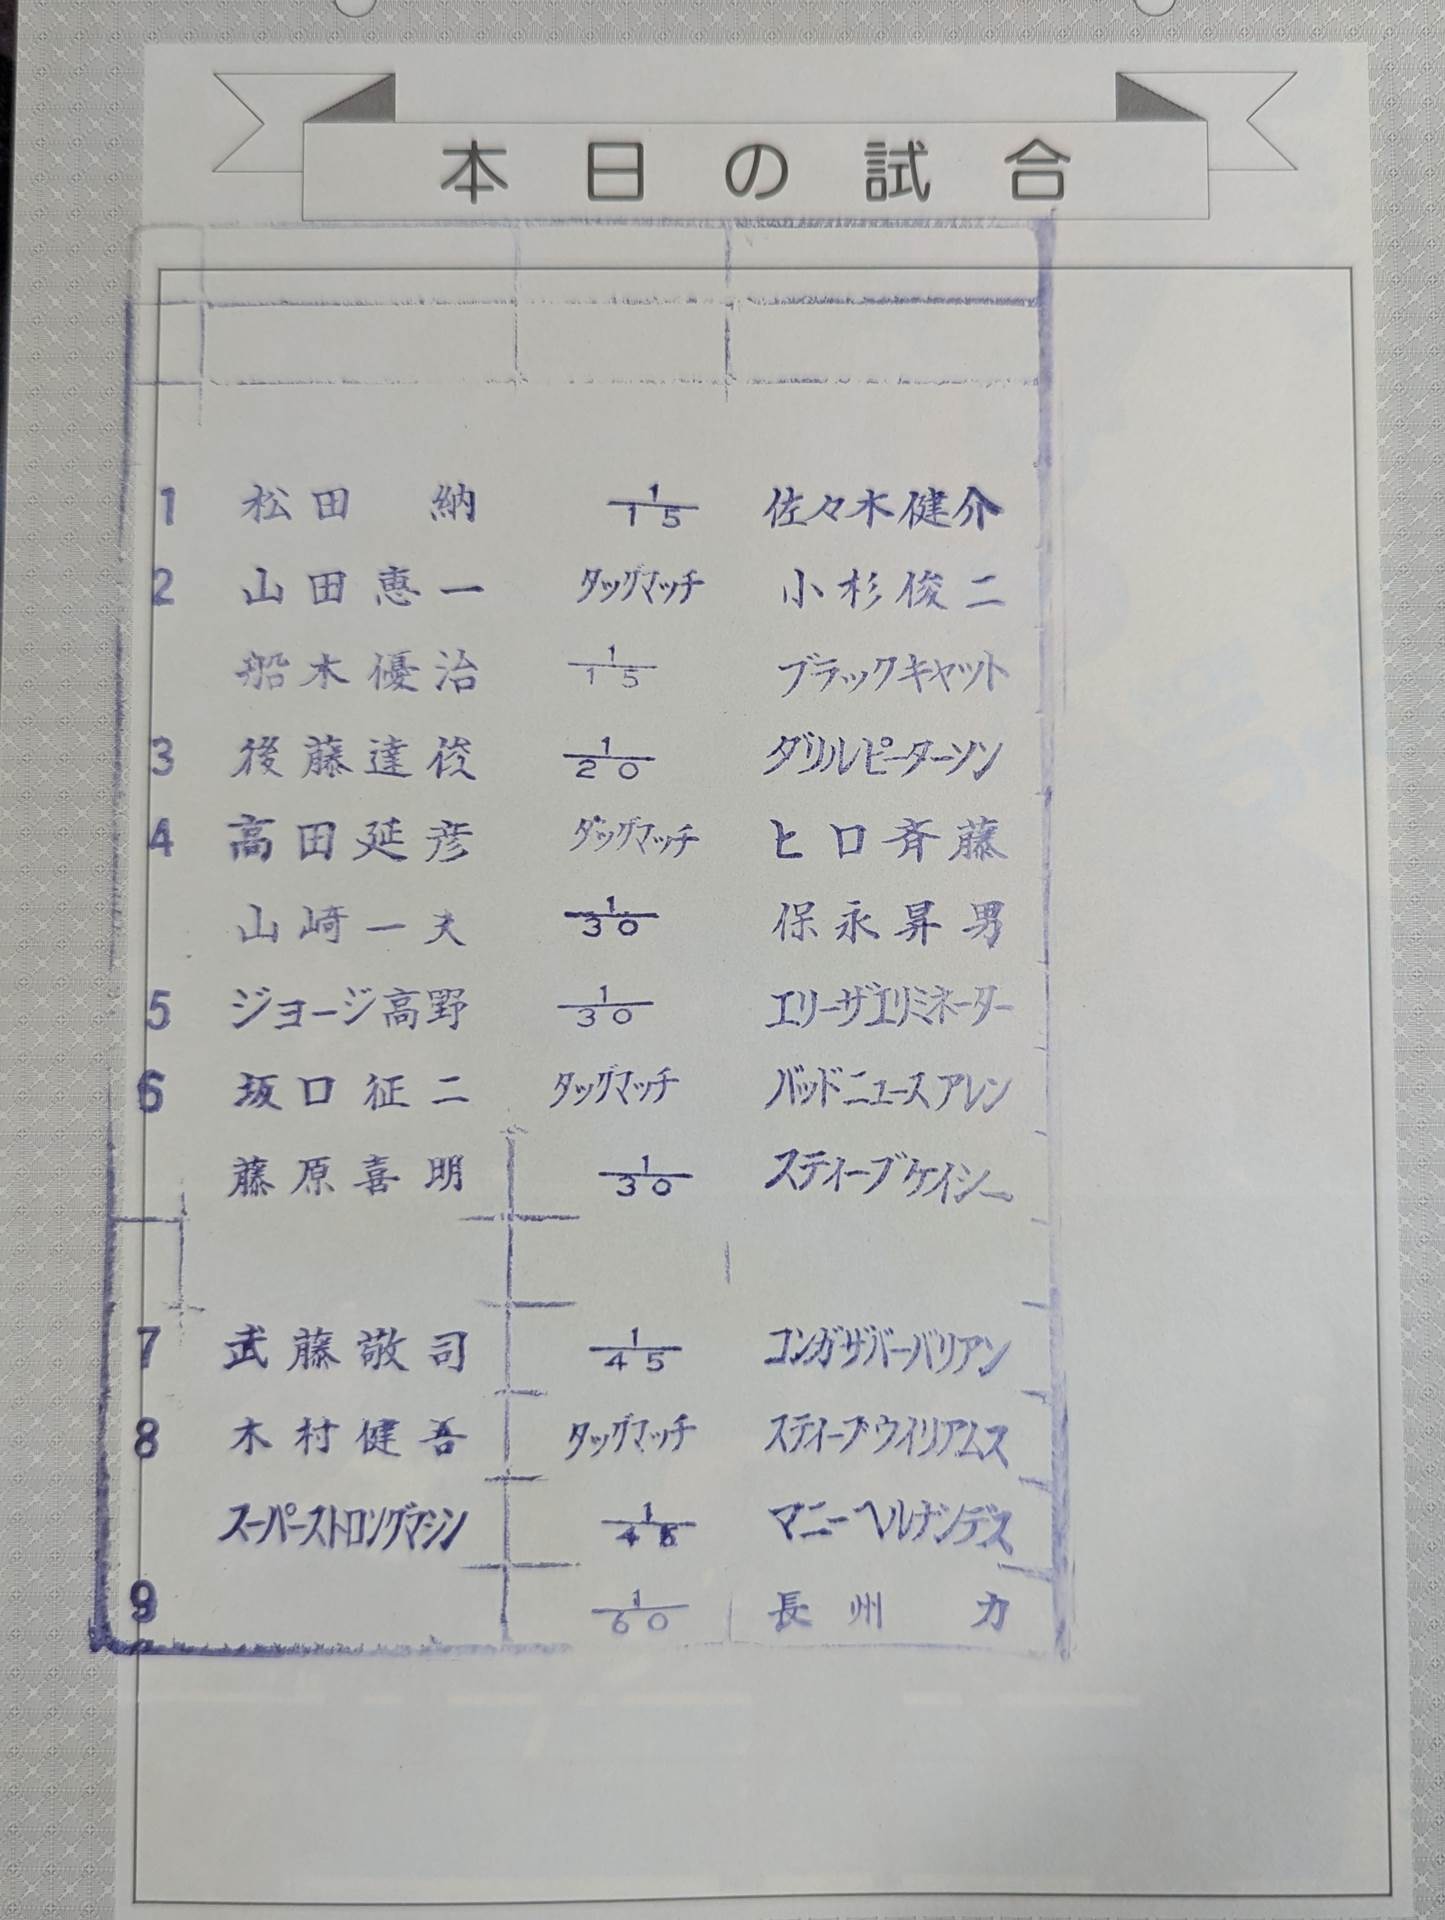 本日の試合
1 松田 納 1/15 佐々木健介
2 山田恵一 タッグマッチ 小杉俊二
船木優治 1/15 ブラックキャット
3 後藤達俊 1/20 ダリルピーターソン
4 高田延彦 タッグマッチ ヒロ斉藤
山崎一夫 1/30 保永昇男
5 ジョージ高野 1/30 エリーザエリミネーター
6 坂口征二 タッグマッチ バッドニュースアレン
藤原喜明 1/30 スティーブケイシー
7 武藤敬司 1/45 コンガザバーバリアン
8 木村健吾 タッグマッチ スティーブウイリアムス
スーパーストロングマシン 1/45 マニーヘルナンデス
9 1/60 長州 力